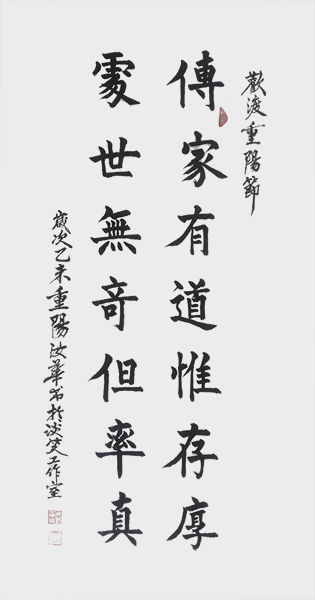 歡渡重陽節
傳家有道惟存厚
處世無奇但率真
歲次乙未重陽汝華書於淡笑工作室